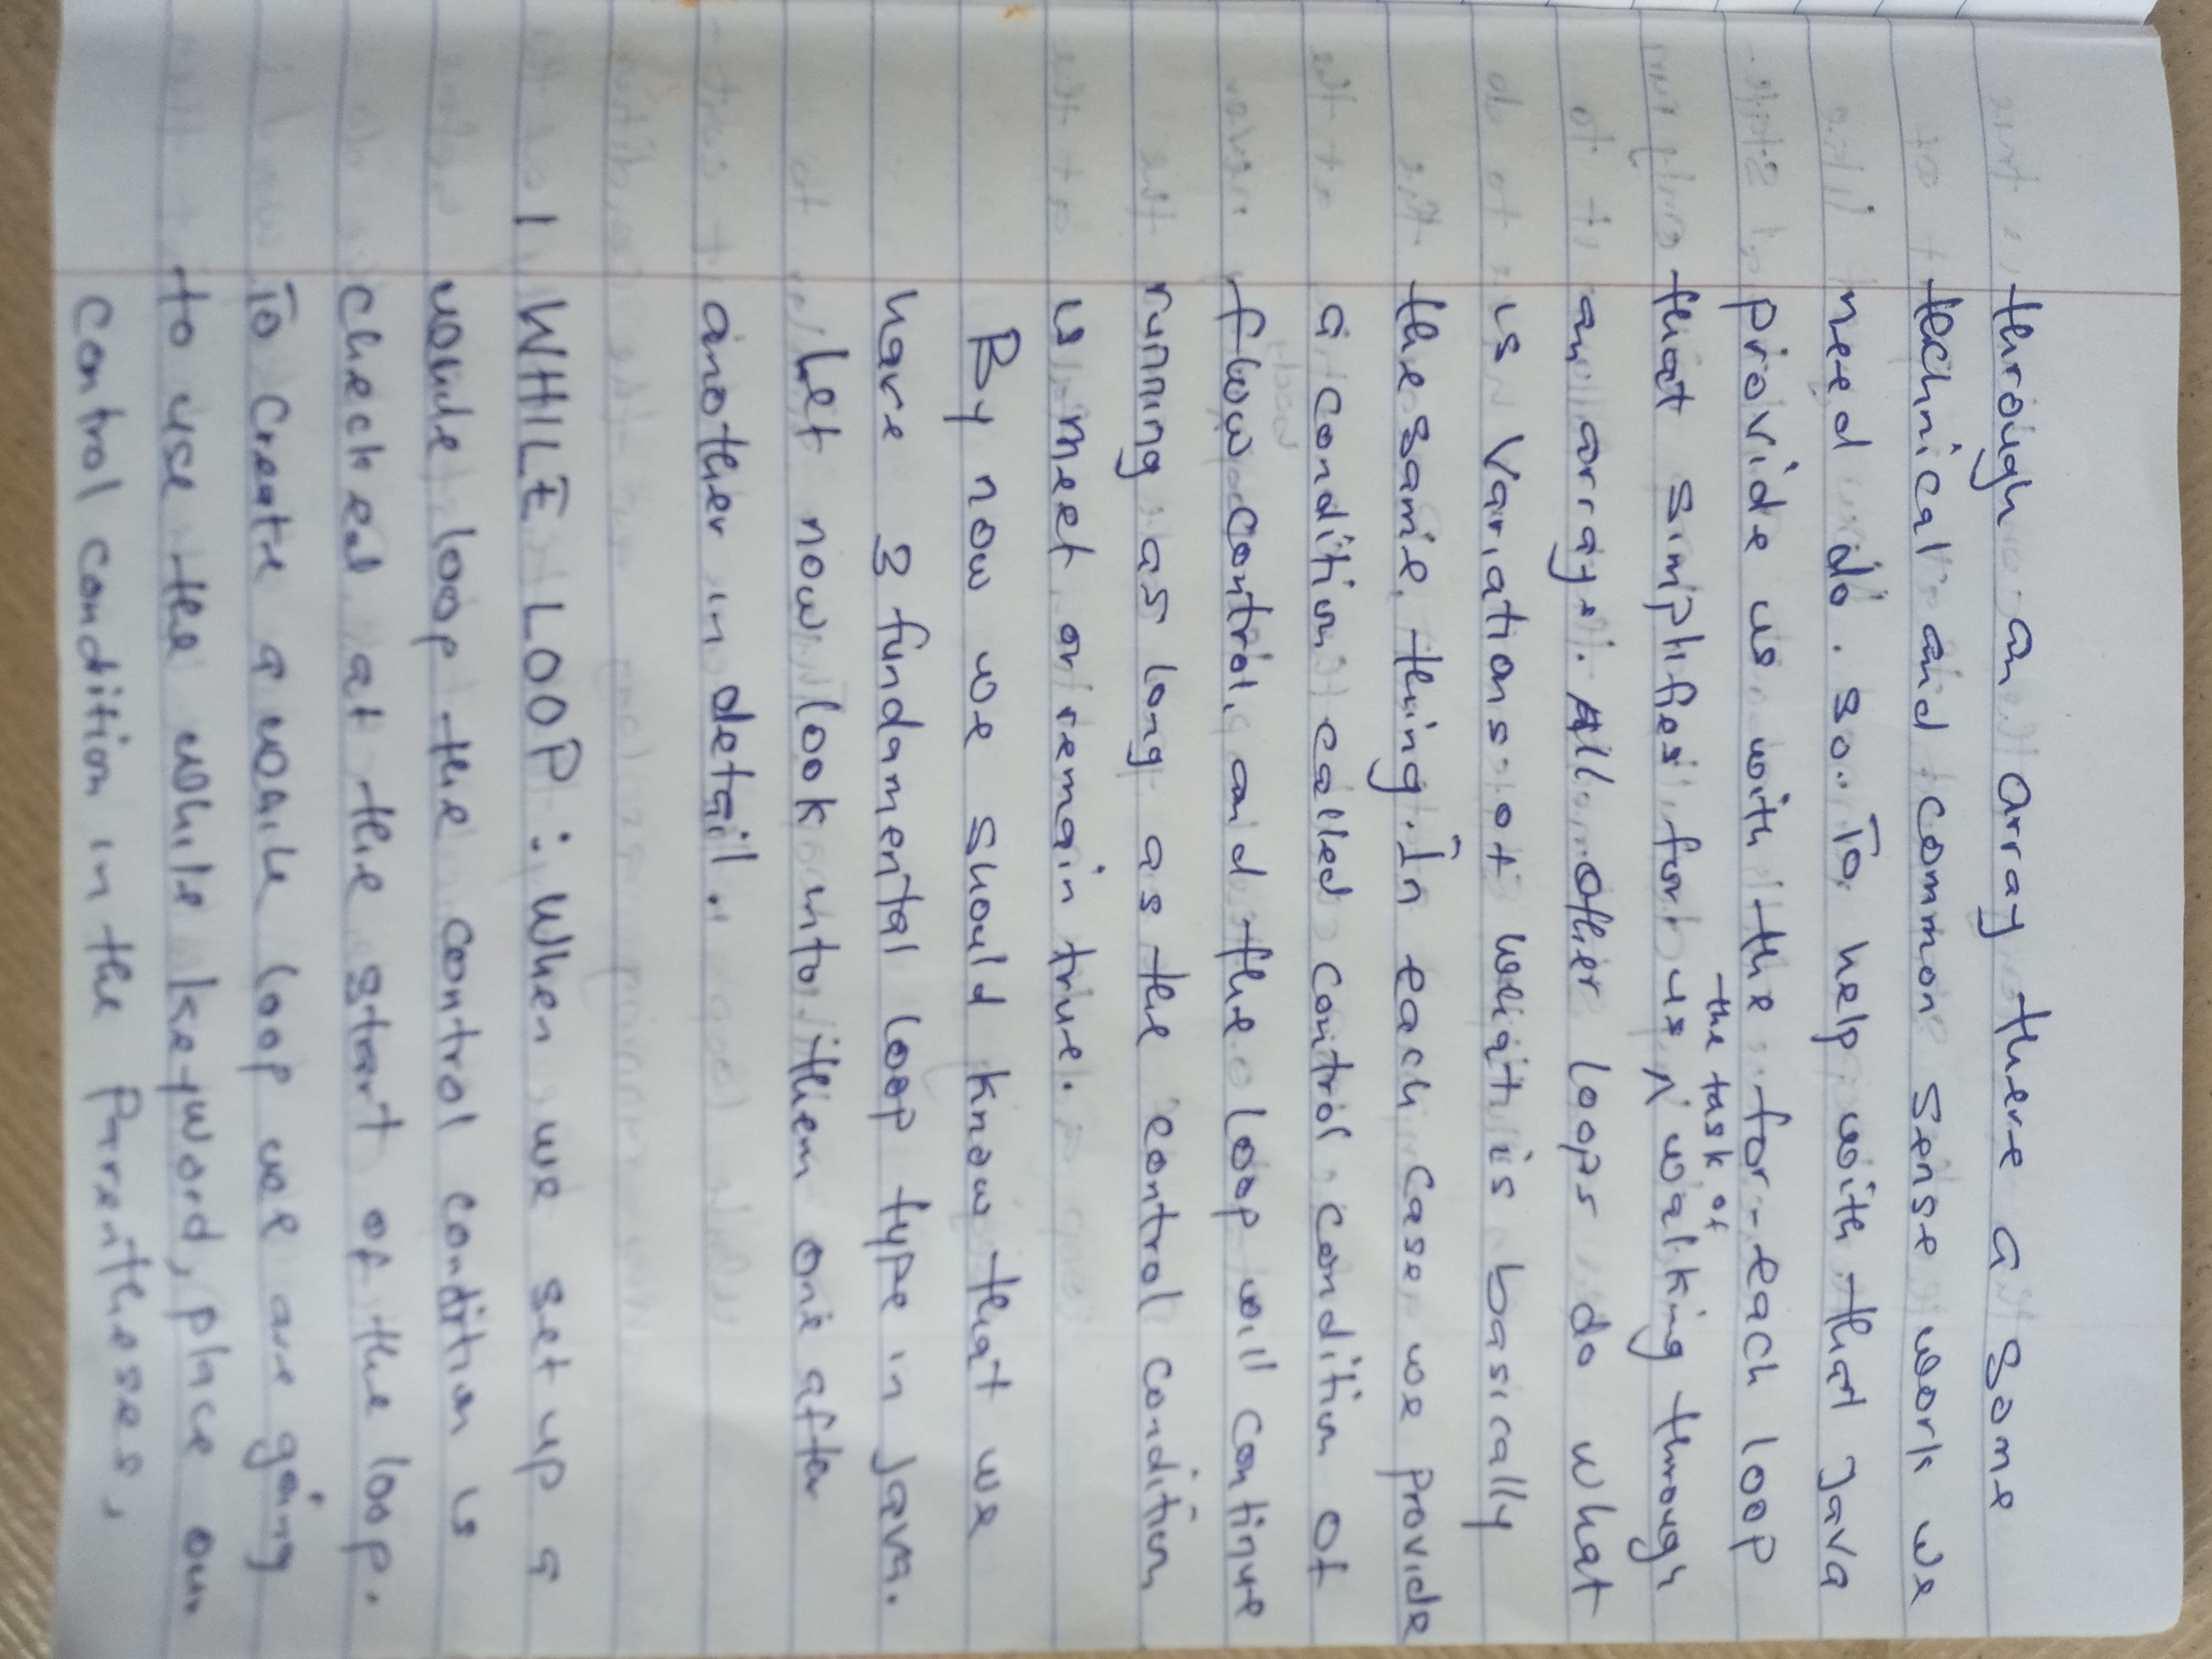 through an array there a some
technical and common sense work we
need do. so. To help with that Java
provide us with the for-each loop
the task of
that simplifies for us ^ walking through
an array. All other loops do what
is variations of what is basically
the same thing. In each case we provide
a condition called control condition of
flow control, and the loop will continue
running as long as the control condition
is meet or remain true.
By now we should know that we
have 3 fundamental loop type in Java.
Let now look into them one after
another in detail.
1 WHILE LOOP: When we set up a
while loop the control condition is
checked at the start of the loop.
To create a while loop we are going
to use the while keyword, place our
control condition in the Parentheses,